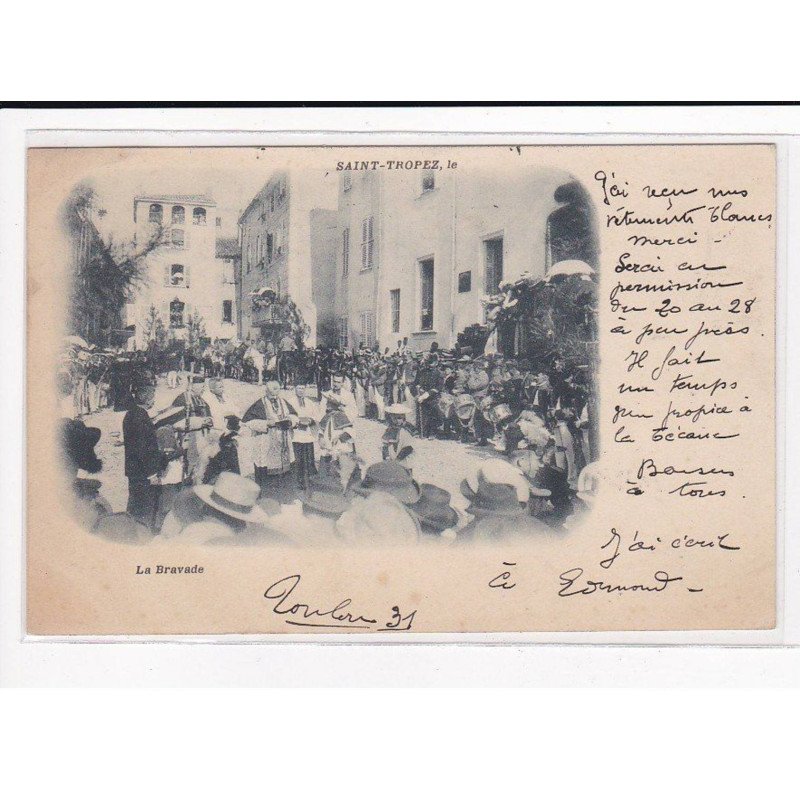 SAINT-TROPEZ, le
J'ai reçu mes
vêtements blancs
merci -
Serai en
permission
du 20 au 28
à peu près
Il fait
un temps
peu propice à
la bécane
Baisers
à tous.
J'ai écrit
à Edmond -
La Bravade
Toulon 31